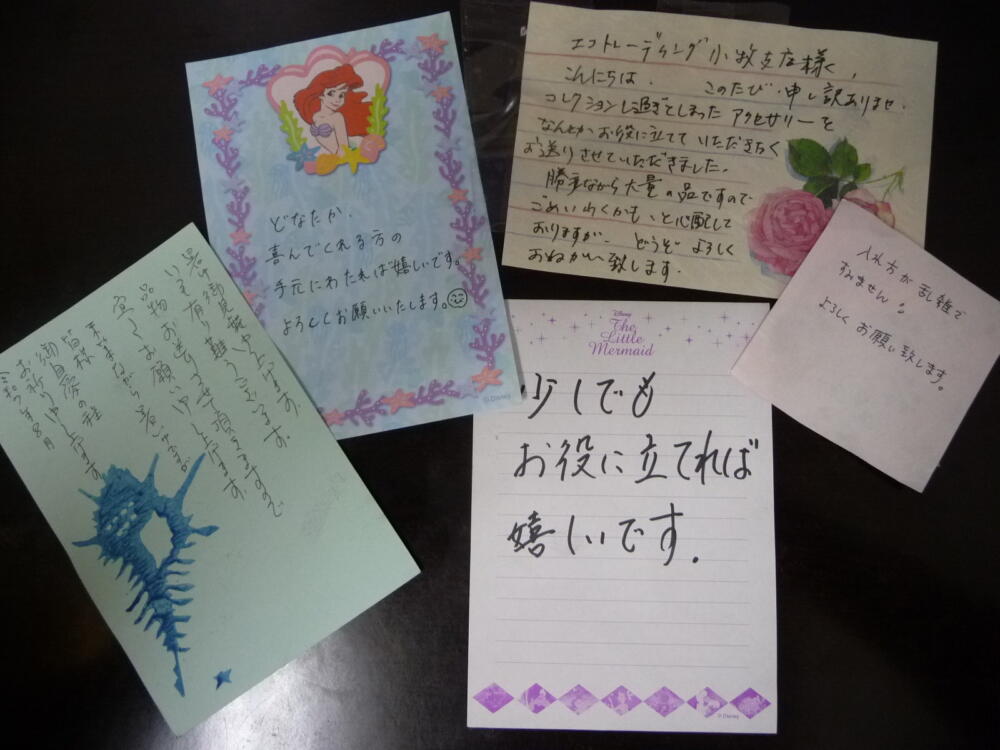 どなたか、
喜んでくれる方の
手元にわたれば嬉しいです。
よろしくお願いいたします。
© Disney
エコトレーディング小牧支店様へ、
こんにちは、このたび、申し訳ありませ、
コレクションし過ぎてしまった アクセサリーを
なんとかお役に立てて いただきたく
お送りさせていただきました。
勝手ながら大量の品ですので
ごめいわくかも、と心配して
おりますが、どうぞ よろしく
おねがい致します.
入れ方が乱雑で
すみません!
よろしく お願い致します。
暑中御見舞申し上げます。
いつも有り難うございます。
品物お送りさせて頂きますので
宜しくお願い申し上げます。
末筆ながら暑いですが
皆様
御自愛の程
お祈り申し上げます
令和7年8月
Disney
The
Little
Mermaid
少しでも
お役に立てれば
嬉しいです.
© Disney